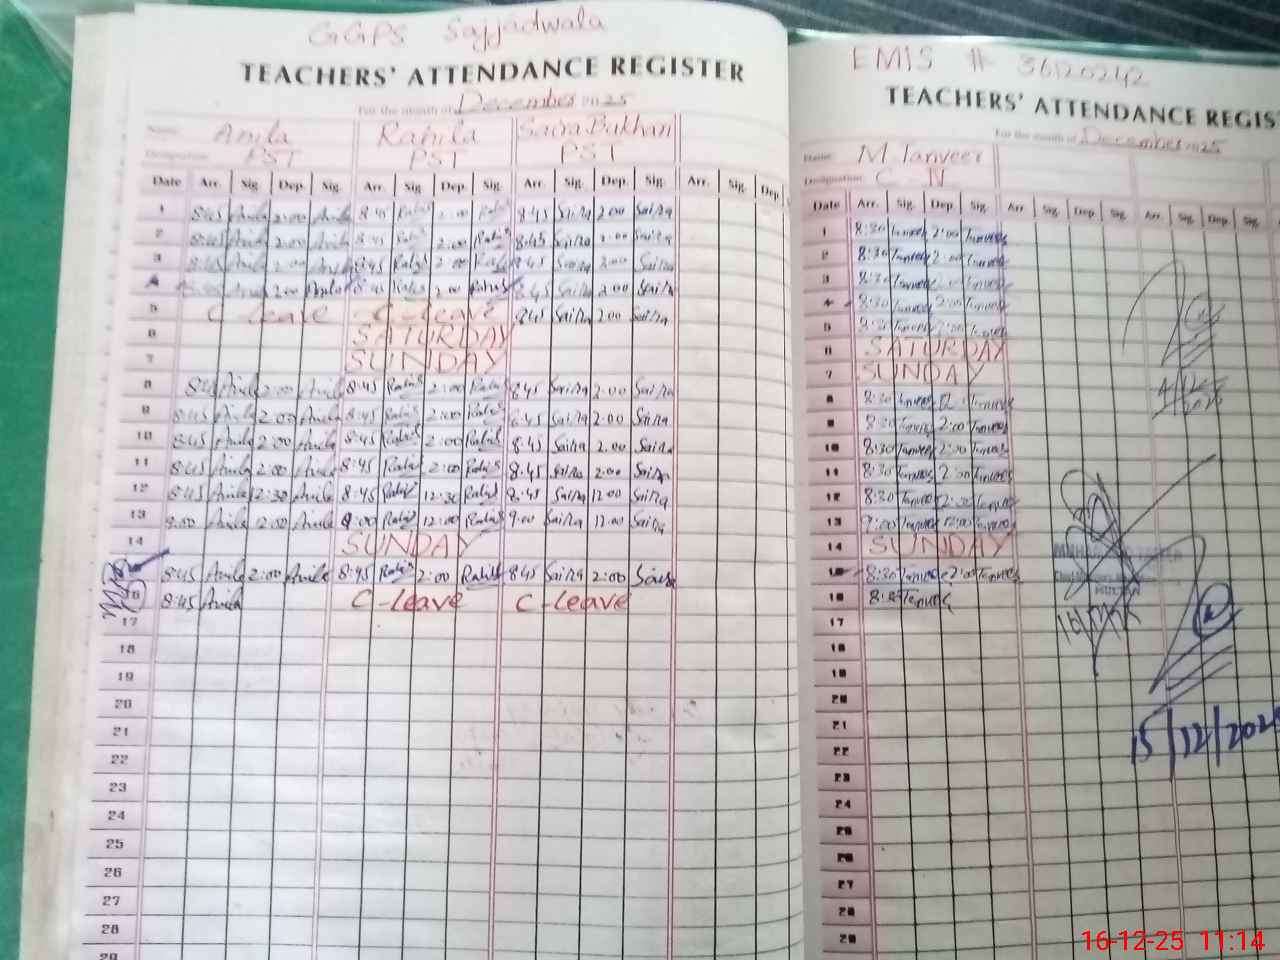 GGPS Sajjadwala
TEACHERS' ATTENDANCE REGISTER
For the month of December 2025
Name Anila Rahila Saira Bukhari
Designation PST PST PST
Date Arr. Sig. Dep. Sig. Arr. Sig. Dep. Sig. Arr. Sig. Dep. Sig. Arr. Sig. Dep
1 8:45 Anila 2:00 Anila 8:45 Rahila 2:00 Rahila 8:45 Saira 2:00 Saira
2 8:45 Anila 2:00 Anila 8:45 Rahila 2:00 Rahila 8:45 Saira 2:00 Saira
3 8:45 Anila 2:00 Anila 8:45 Rahila 2:00 Rahila 8:45 Saira 2:00 Saira
4 8:45 Anila 2:00 Anila 8:45 Rahila 2:00 Rahila 8:45 Saira 2:00 Saira
5 C-leave C-leave 8:45 Saira 2:00 Saira
6 SATURDAY
7 SUNDAY
8 8:45 Anila 2:00 Anila 8:45 Rahila 2:00 Rahila 8:45 Saira 2:00 Saira
9 8:45 Anila 2:00 Anila 8:45 Rahila 2:00 Rahila 8:45 Saira 2:00 Saira
10 8:45 Anila 2:00 Anila 8:45 Rahila 2:00 Rahila 8:45 Saira 2:00 Saira
11 8:45 Anila 2:00 Anila 8:45 Rahila 2:00 Rahila 8:45 Saira 2:00 Saira
12 8:45 Anila 12:30 Anila 8:45 Rahila 12:30 Rahila 8:45 Saira 12:00 Saira
13 9:00 Anila 12:00 Anila 9:00 Rahila 12:00 Rahila 9:00 Saira 12:00 Saira
14 SUNDAY
8:45 Anila 2:00 Anila 8:45 Rahila 2:00 Rahila 8:45 Saira 2:00 Saira
16 8:45 Anila C-leave C-leave
17
18
19
20
21
22
23
24
25
26
27
28
29
EMIS # 36120242
TEACHERS' ATTENDANCE REGIS
For the month of December 2025
Name M Tanveer
Designation C N
Date Arr. Sig. Dep. Sig. Arr Sig. Dep. Sig. Arr. Sig. Dep. Sig.
1 8:30 Tanveer 2:00 Tanveer
2 8:30 Tanveer 2:00 Tanveer
3 8:30 Tanveer 2:00 Tanveer
4 8:30 Tanveer 2:00 Tanveer
5 8:30 Tanveer 2:00 Tanveer
6 SATURDAY
7 SUNDAY
8 8:30 Tanveer Tanveer
9 8:30 Tanveer 2:00 Tanveer
10 8:30 Tanveer 2:00 Tanveer
11 8:30 Tanveer 2:00 Tanveer
12 8:30 Tanveer 12:30 Tanveer
13 9:00 Tanveer 12:00 Tanveer
14 SUNDAY
15 8:30 Tanveer 2:00 Tanveer
16 8:30 Tanveer
17
18
19
20
21
22
23
24
25
26
27
28
29
MULTAN
15/12/202
16-12-25 11:14